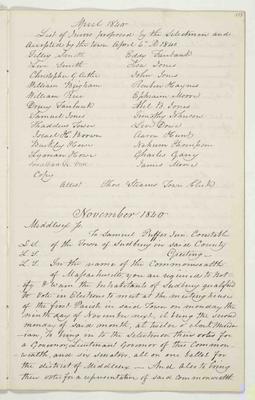 April 1840
List of Jurors proposed by the Selectmen and
Accepted by the town April 6th AD 1840
Tilly Smith Eddy Fairbank
Levi Smith Asa Jones
Christopher G Cutler John Jones
William Brigham Reuben Haynes
William Rice Ephraim Moore
Drury Fairbank Abel B. Jones
Samuel Jones Timothy Johnson
Thaddeus Town Levi Dow
Israel H. Brown Aaron Hunt
Buckley Howe Nahum Thompson
Lyman Howe Charles Gary
Jonathan James Moore
Copy
Attest Thos. Stearns Town Clerk
November 1840
Middlesex Ss.
To Samuel Puffer Jun. Constable
L.S. of the Town of Sudbury in said County
L.S. Greeting
L.S. In the name of the Commonwealth
of Massachusetts you are required to Not-
ify & warn the Inhabitants of Sudbury qualified
to vote in Elections to meet at the meeting house
of the first Parish in said Town on monday the
ninth day of November next, it being the second
monday of said month, at twelve o'clock Meridi-
an, to bring in to the Selectmen their votes for
a Governor, Lieutenant Governor of this Common-
wealth, and Senators, all on one ballot for
the district of Middlesex — And also to bring
their vote for a representative of said Commonwealth